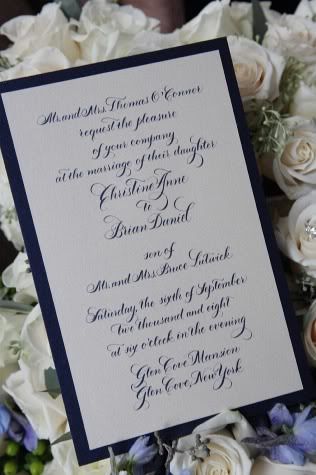 Mr. and Mrs. Thomas O'Connor
request the pleasure
of your company
at the marriage of their daughter
Christine Anne
to
Brian Daniel
son of
Mr. and Mrs. Bruce Lutwick
Saturday, the sixth of September
two thousand and eight
at six o'clock in the evening
Glen Cove Mansion
Glen Cove, New York